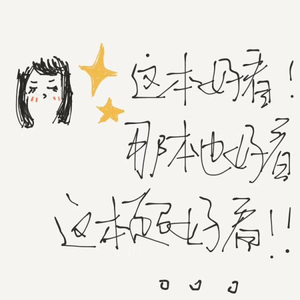 这本好看!
那本也好看
这本更好看!!
。。。